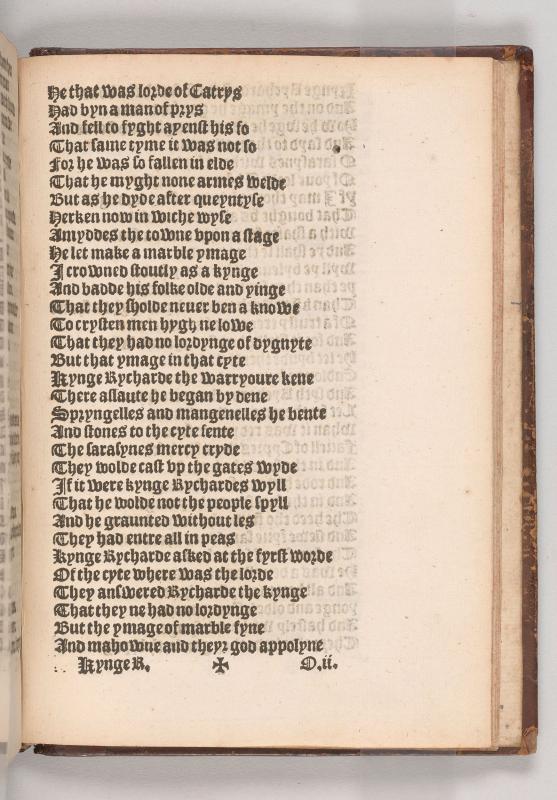 He that was lorde of Catrys
Had byn a man of prys
And fell to fyght ayenst his fo
That same tyme it was not so
For he was so fallen in elde
That he myght none armes welde
But as he dyde after queyntyse
Herken now in withe wyse
Amyddes the towne vpon a stage
He let make a marble ymage
I crowned stoutly as a kynge
And badde his folke olde and yinge
That they sholde neuer ben a knowe
To crysten men hygh ne lowe
That they had no lordynge of dygnyte
But that ymage in that cyte
Kynge Rycharde the warryoure kene
There assaute he began by dene
Spryngelles and mangenelles he bente
And stones to the cyte sente
The sarasynes mercy cryde
They wolde cast vp the gates wyde
If it were kynge Rychardes wyll
That he wolde not the people spyll
And he graunted without les
They had entre all in peas
Kynge Rycharde asked at the fyrst worde
Of the cyte where was the lorde
They answered Rycharde the kynge
That they ne had no lordynge
But the ymage of marble fyne
And mahowne and theyr god appolyne
Kynge R. ✠ O.ii.